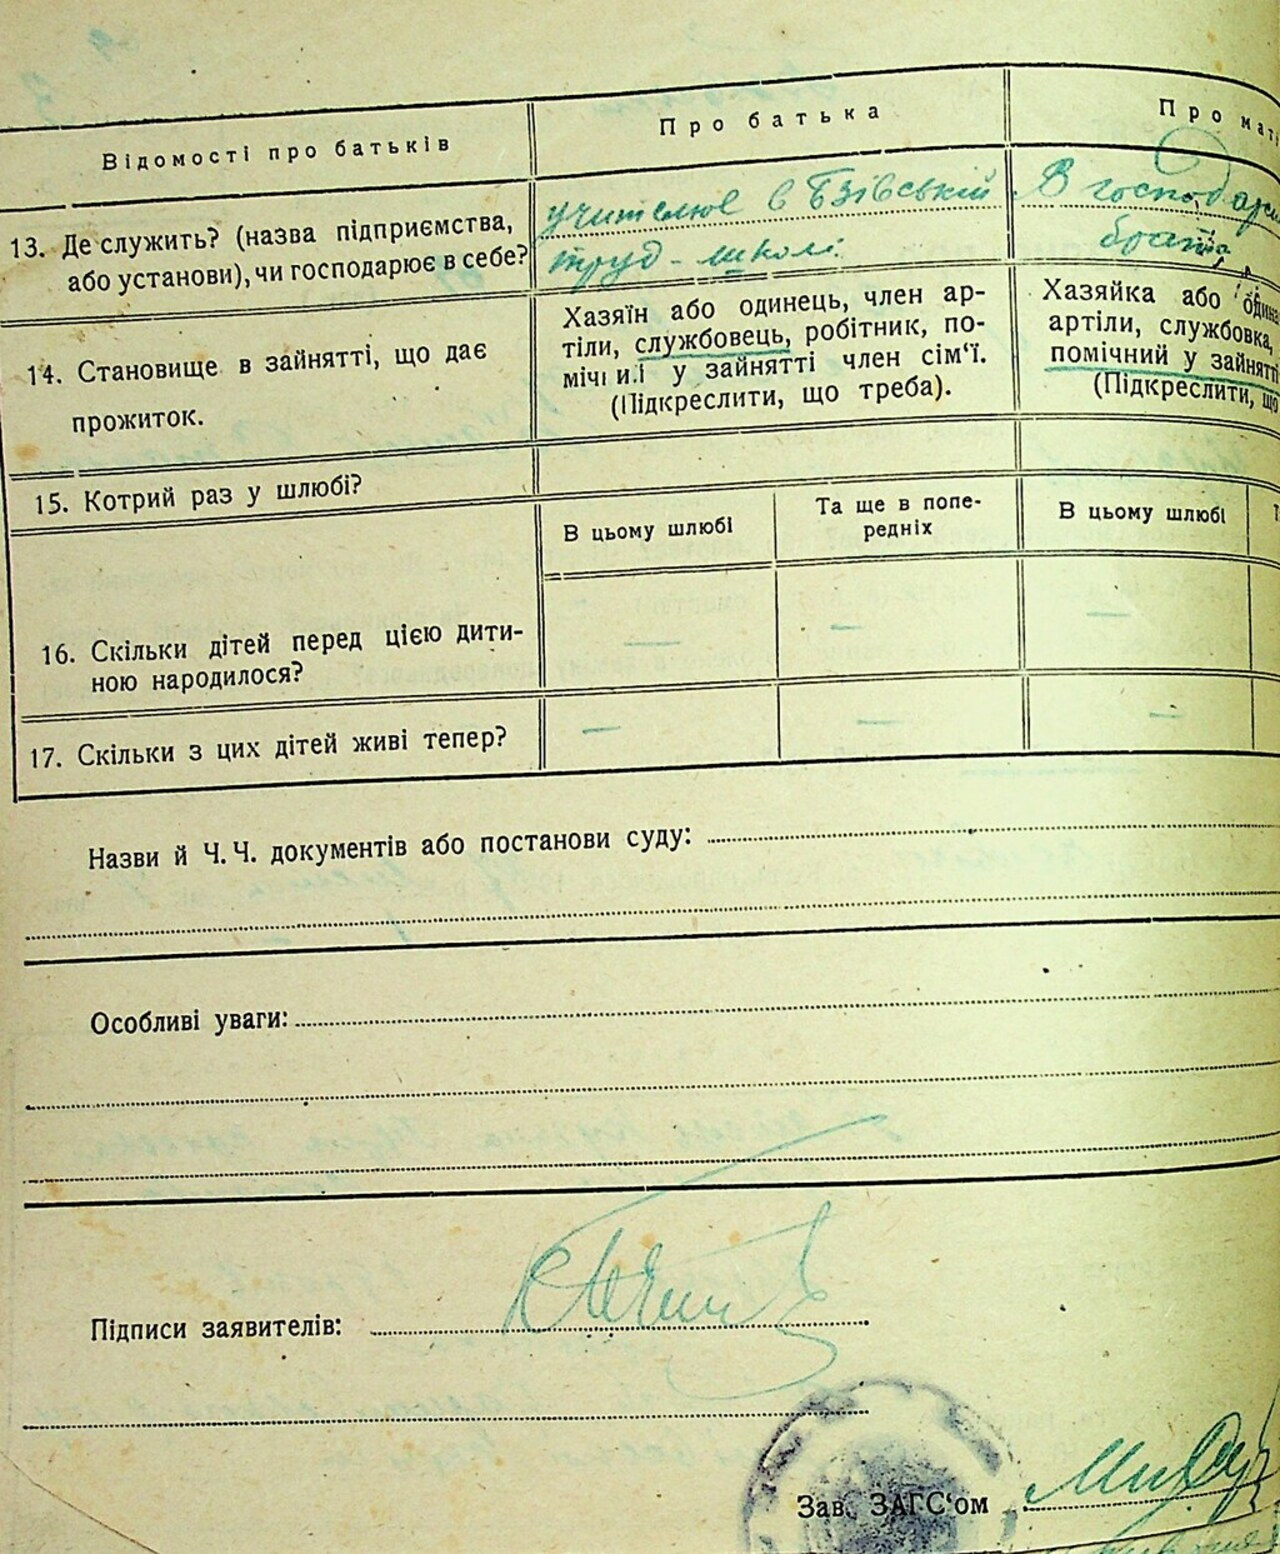 Відомості про батьків
Про батька
Про мат
13. Де служить? (назва підприємства,
або установи), чи господарює в себе?
учителює в Бзівській
труд-школі.
В господар
брата
14. Становище в зайнятті, що дає
прожиток.
Хазяїн або одинець, член ар-
тіли, службовець, робітник, по-
мічний у зайнятті член сім‘ї.
(Підкреслити, що треба).
Хазяйка або один
артіли, службовка,
помічний у зайнятті
(Підкреслити, що
15. Котрий раз у шлюбі?
В цьому шлюбі
Та ще в попе-
редніх
В цьому шлюбі
Т
16. Скільки дітей перед цією дити-
ною народилося?
— — —
17. Скільки з цих дітей живі тепер?
— — —
Назви й Ч. Ч. документів або постанови суду:
Особливі уваги:
Підписи заявителів:
Зав. ЗАГС‘ом